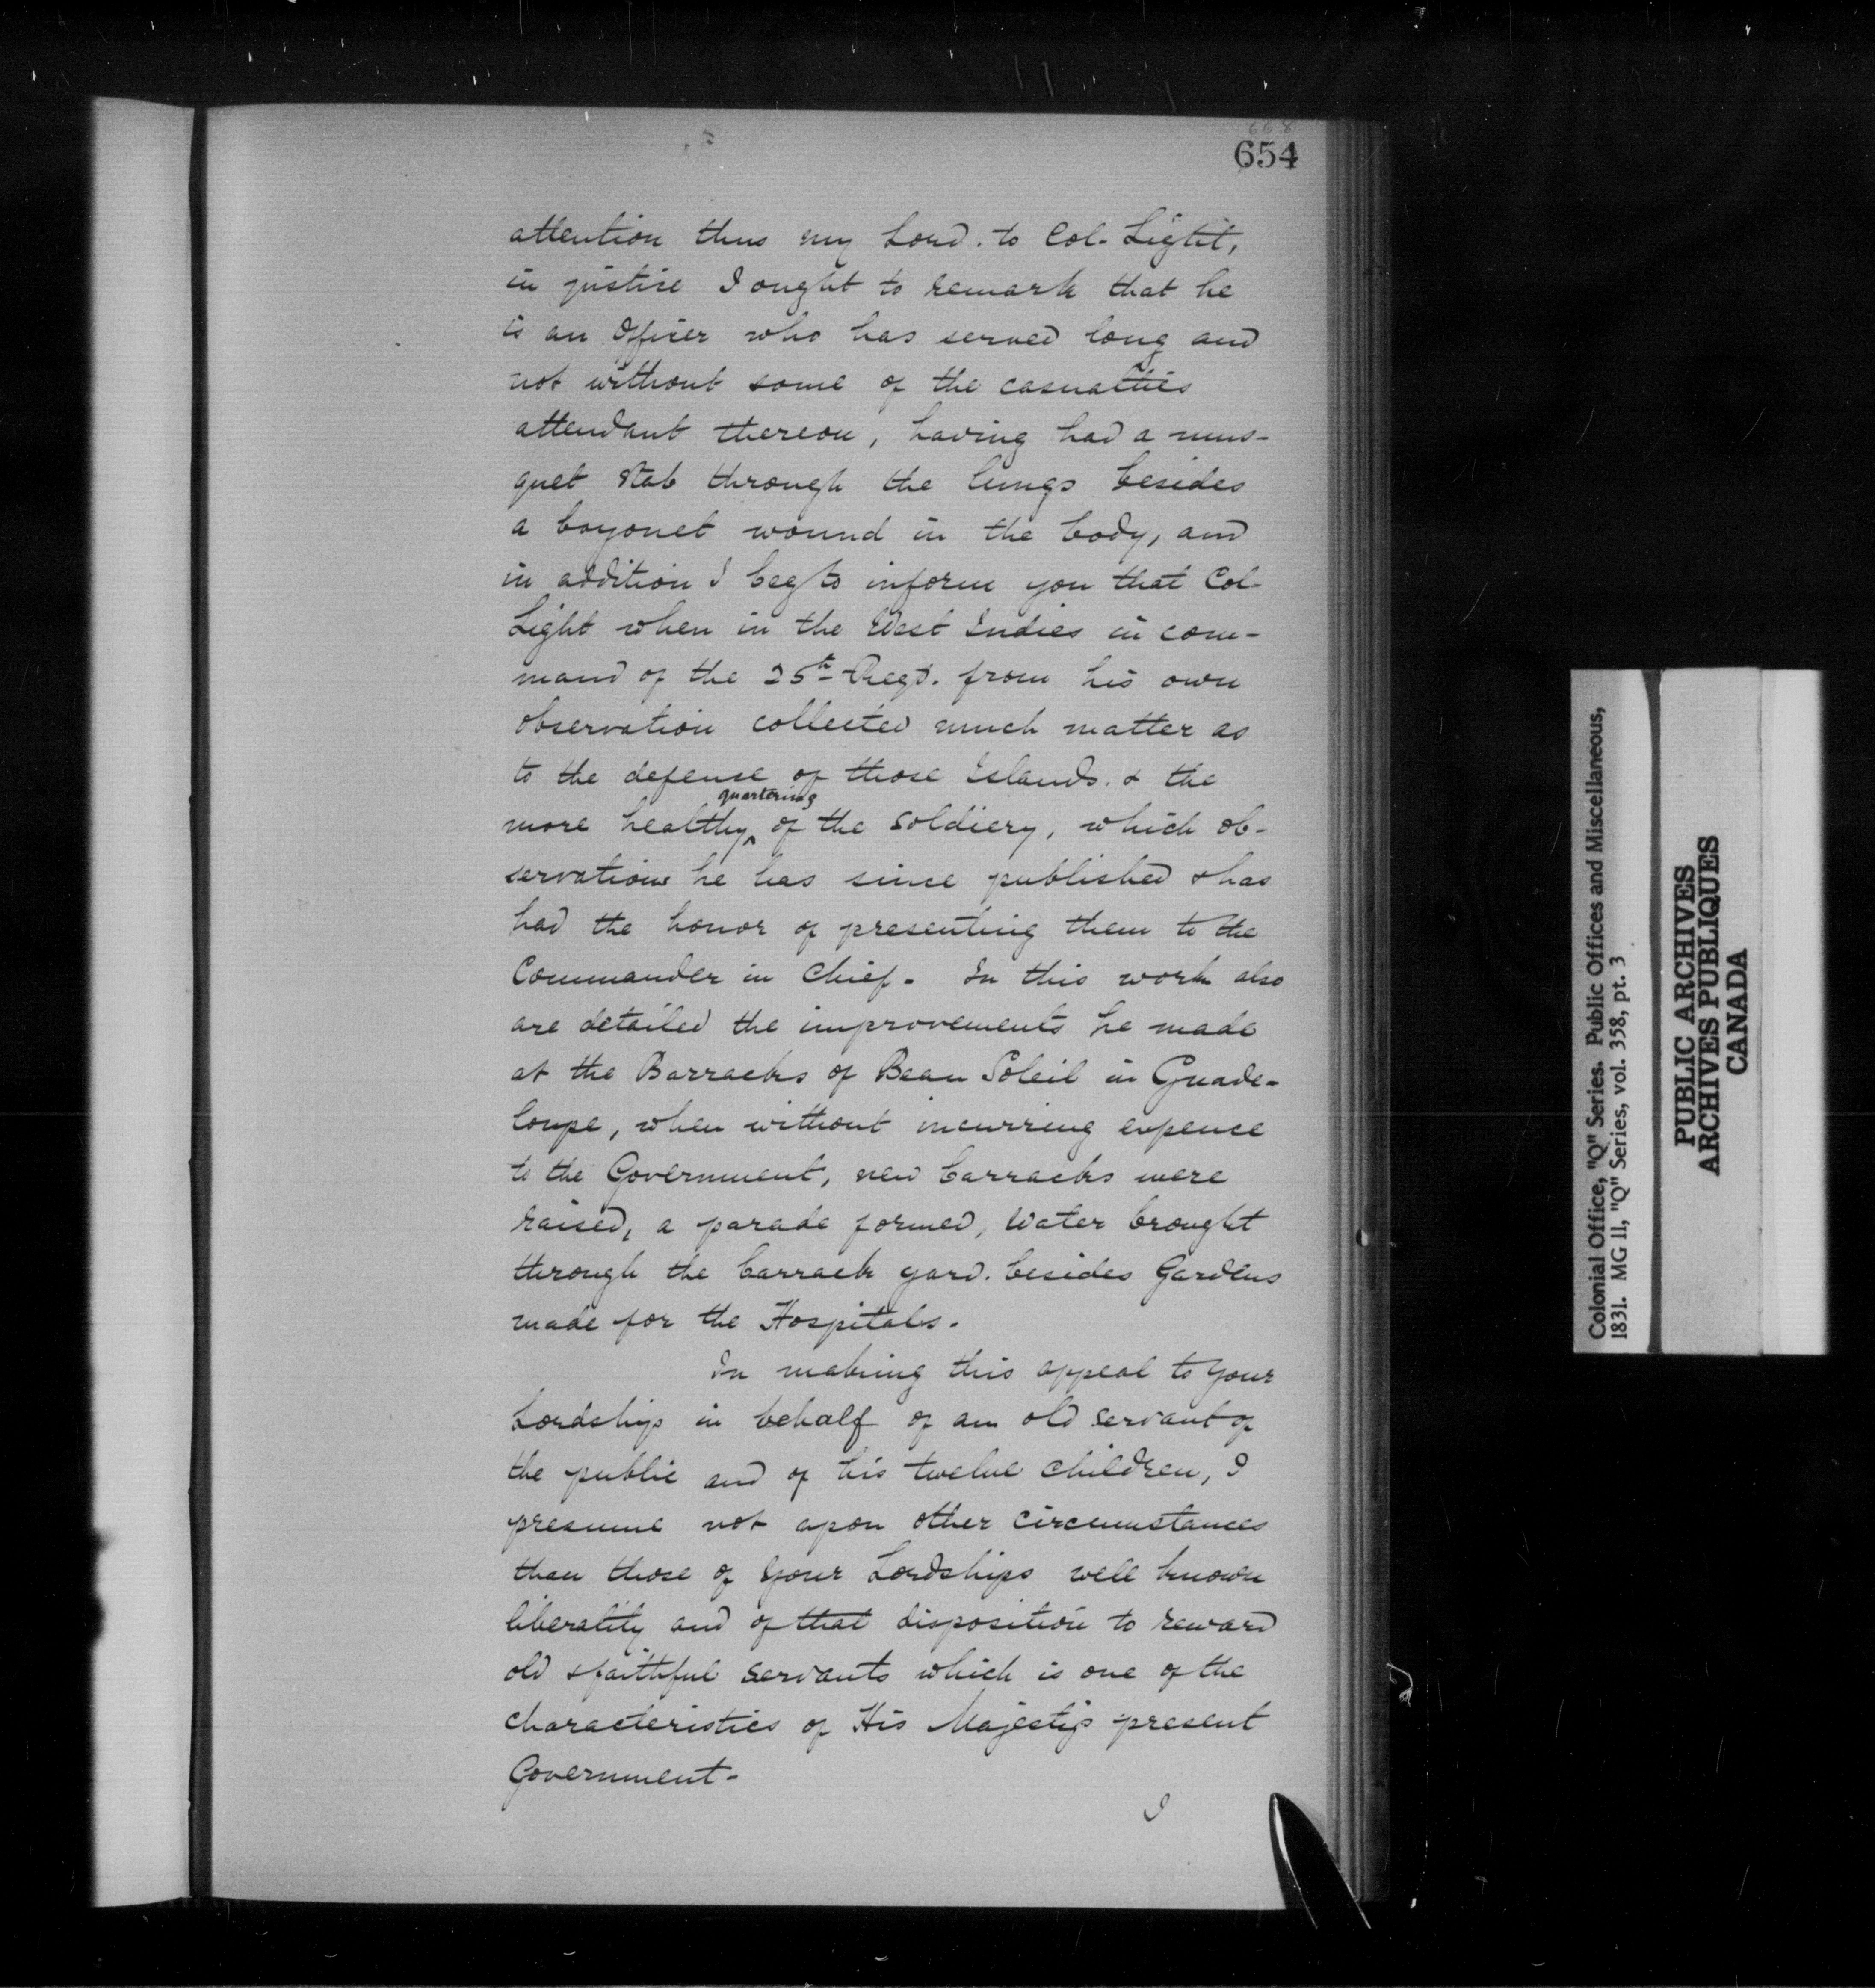 668
654
attention thus my Lord. to Col. Light,
in justice I ought to remark that he
is an Officer who has served long and
not without some of the casualties
attendant thereon, having had a mus-
quet stab through the lungs besides
a bayonet wound in the body, and
in addition I beg to inform you that Col-
Light when in the West Indies in com-
mand of the 25th Regt. from his own
observation collected much matter as
to the defense of those Islands. & the
quartering
more healthy ^ of the soldiery, which ob-
servations he has since published & has
had the honor of presenting them to the
Commander in Chief. In this work also
are detailed the improvements he made
at the Barracks of Beau Soleil in Guade-
loupe, when without incurring expence
to the Government, new barracks were
raised, a parade formed, Water brought
through the barrack yard. besides Gardens
made for the Hospitals.
In making this appeal to Your
Lordship in behalf of an old servant of
the public and of his twelve children, I
presume not upon other circumstances
than those of Your Lordships well known
liberality and of that disposition to reward
old & faithful servants which is one of the
characteristics of His Majesty's present
Government-
I
Colonial Office, "Q" Series. Public Offices and Miscellaneous,
1831. MG 11, "Q" Series, vol. 358, pt. 3
PUBLIC ARCHIVES
ARCHIVES PUBLIQUES
CANADA